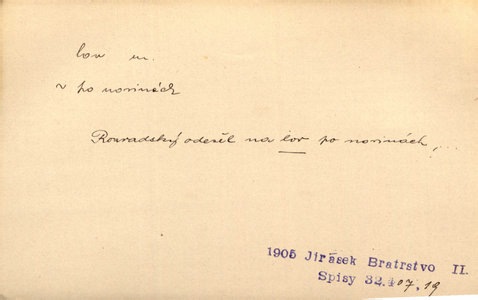 lov m.
~ po novinách
Rousadský odešel na lov po novinách,...
1905 Jirásek Bratrstvo II.
Spisy 32.407.19